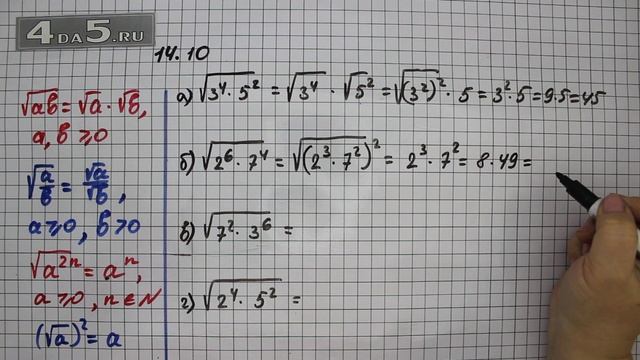 4DA5.RU
14.10
√ab = √a · √b,
a, b ⩾ 0
√a/b = √a/√b,
a ⩾ 0, b > 0
√a²ⁿ = aⁿ,
a ⩾ 0, n ∈ N
(√a)² = a
а) √3⁴ · 5² = √3⁴ · √5² = √(3²)² · 5 = 3² · 5 = 9 · 5 = 45
б) √2⁶ · 7⁴ = √(2³ · 7²)² = 2³ · 7² = 8 · 49 =
в) √7² · 3⁶ =
г) √2⁴ · 5² =